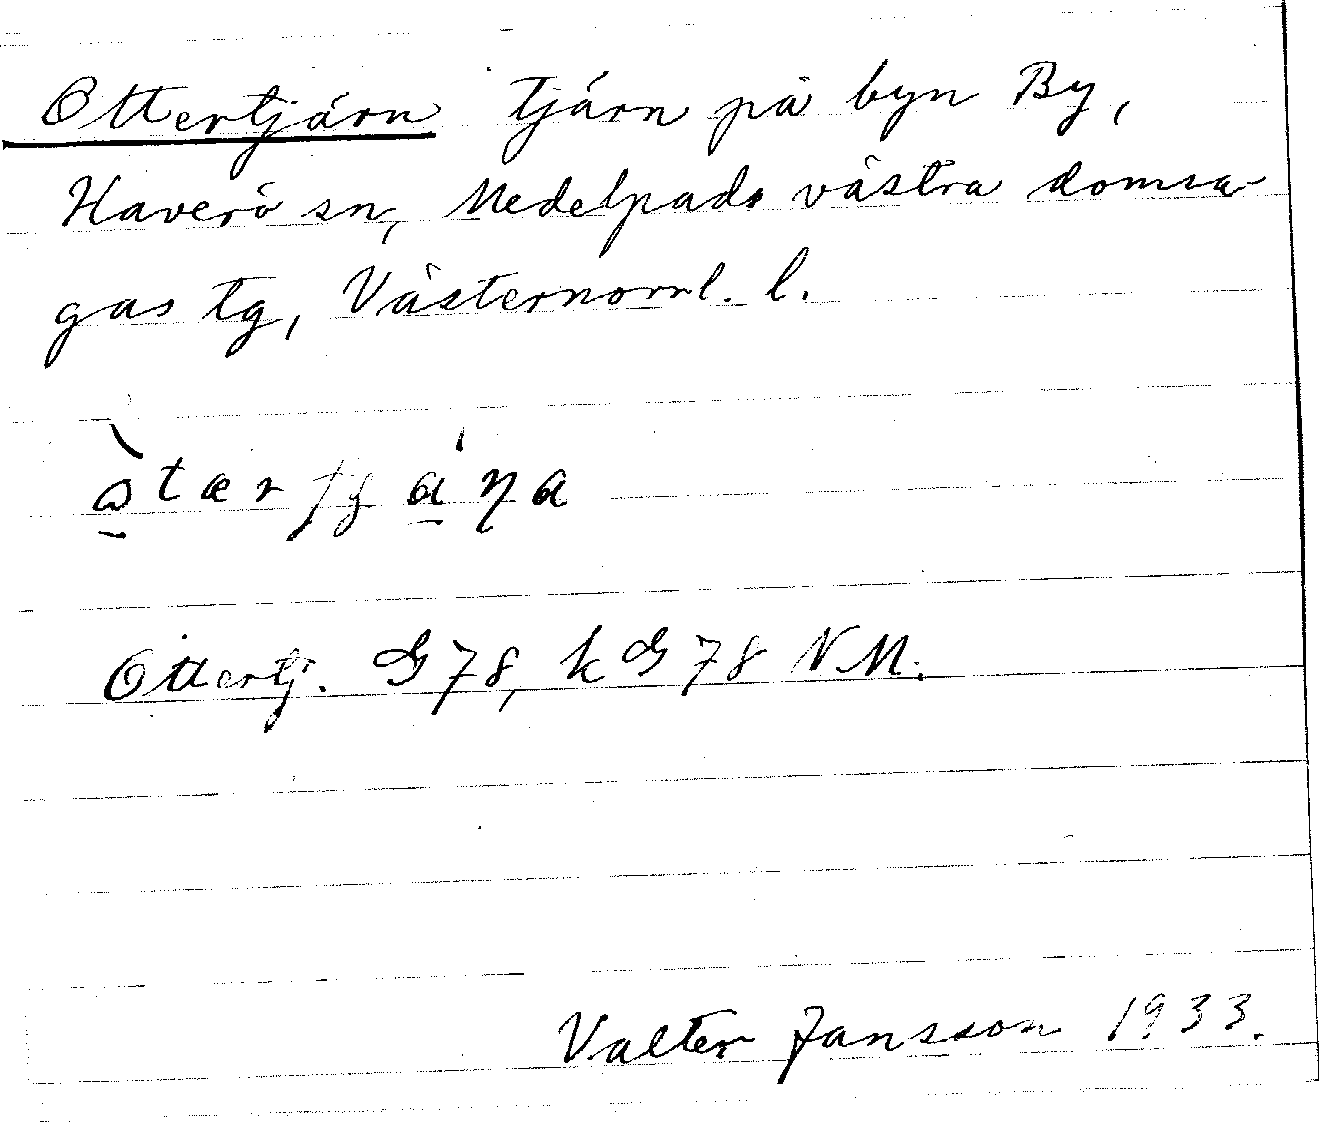 Ottertjärn Tjärn på byn By,
Haverö sn, Medelpads västra domsa-
gas tg, Västernorrl. l.
Ottertj. G 78, k G 78 N.M.
Valter Jansson 1933.